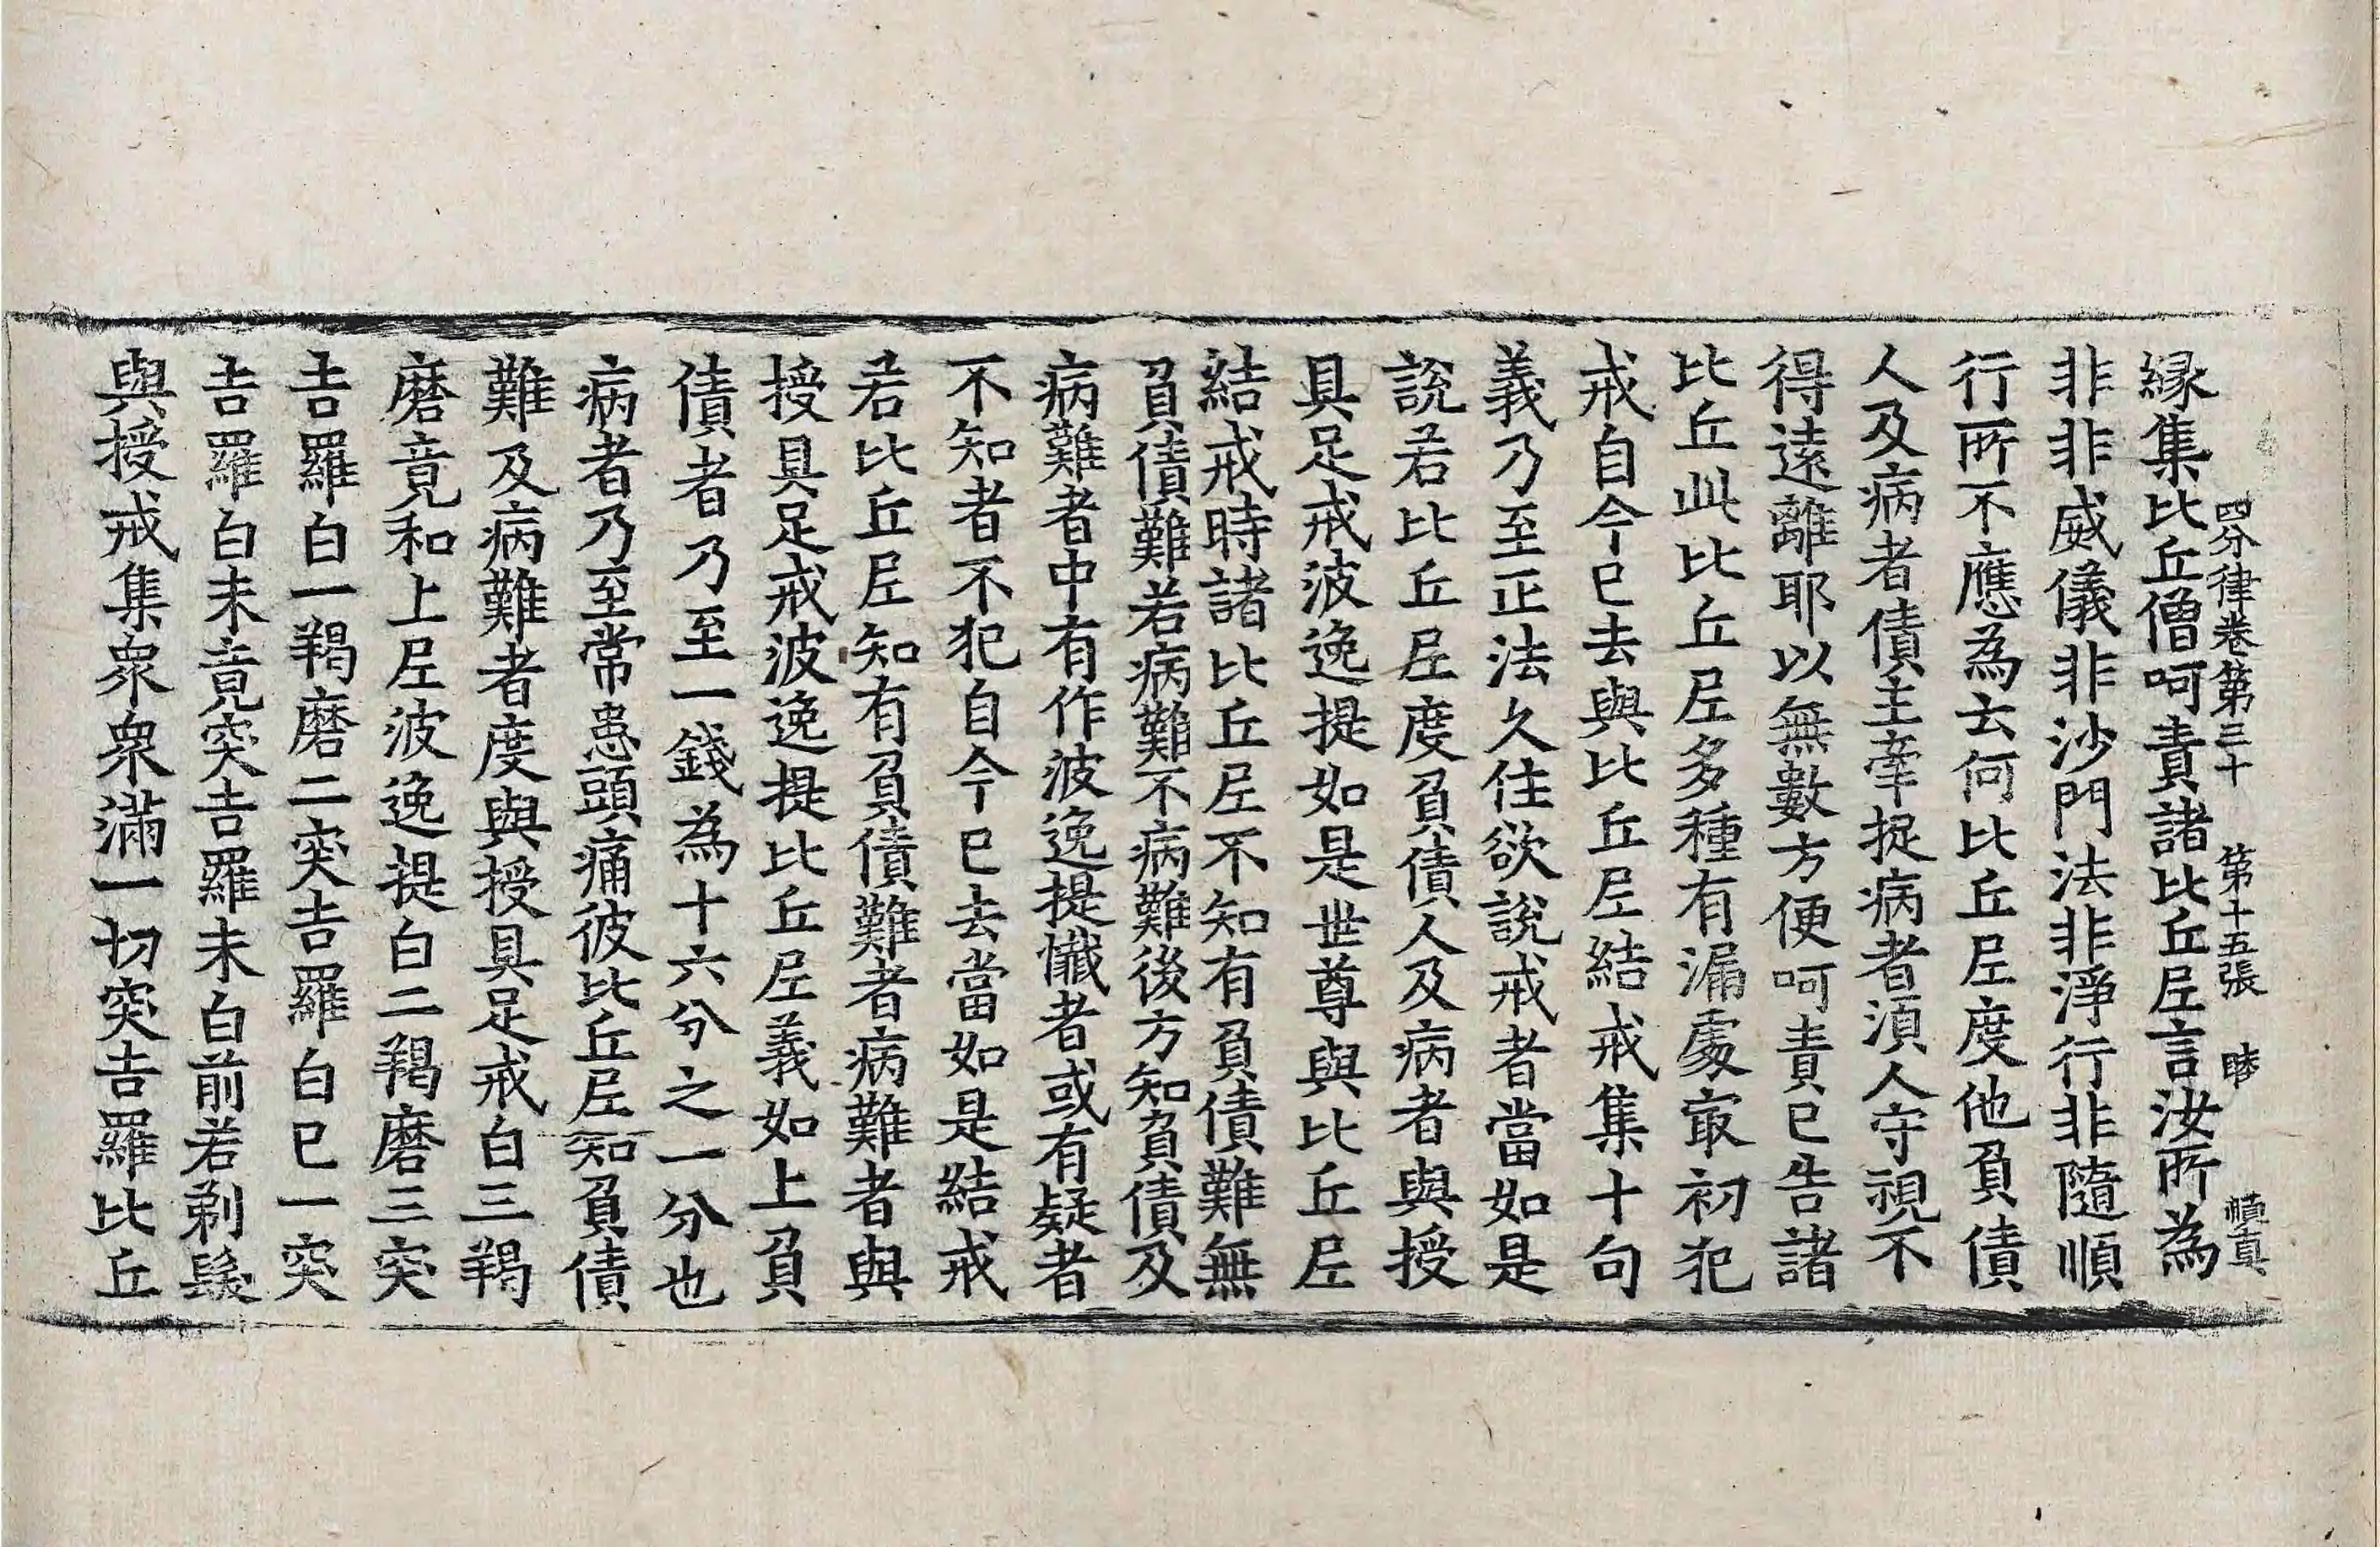 四分律卷第三十　第十五張　睦　慎真
緣集比丘僧呵責諸比丘尼言汝所為
非非威儀非沙門法非淨行非隨順
行所不應為云何比丘尼度他負債
人及病者債主牽捉病者須人守視不
得遠離耶以無數方便呵責已告諸
比丘此比丘尼多種有漏處最初犯
戒自今已去與比丘尼結戒集十句
義乃至正法久住欲說戒者當如是
說若比丘尼度負債人及病者與授
具足戒波逸提如是世尊與比丘尼
結戒時諸比丘尼不知有負債難無
負債難若病難不病難後方知負債及
病難者中有作波逸提懺者或有疑者
不知者不犯自今已去當如是結戒
若比丘尼知有負債難者病難者與
授具足戒波逸提比丘尼義如上負
債者乃至一錢為十六分之一分也
病者乃至常患頭痛彼比丘尼知負債
難及病難者度與授具足戒白三羯
磨竟和上尼波逸提白二羯磨三突
吉羅白一羯磨二突吉羅白已一突
吉羅白未竟突吉羅未白前若剃髮
與授戒集眾眾滿一切突吉羅比丘